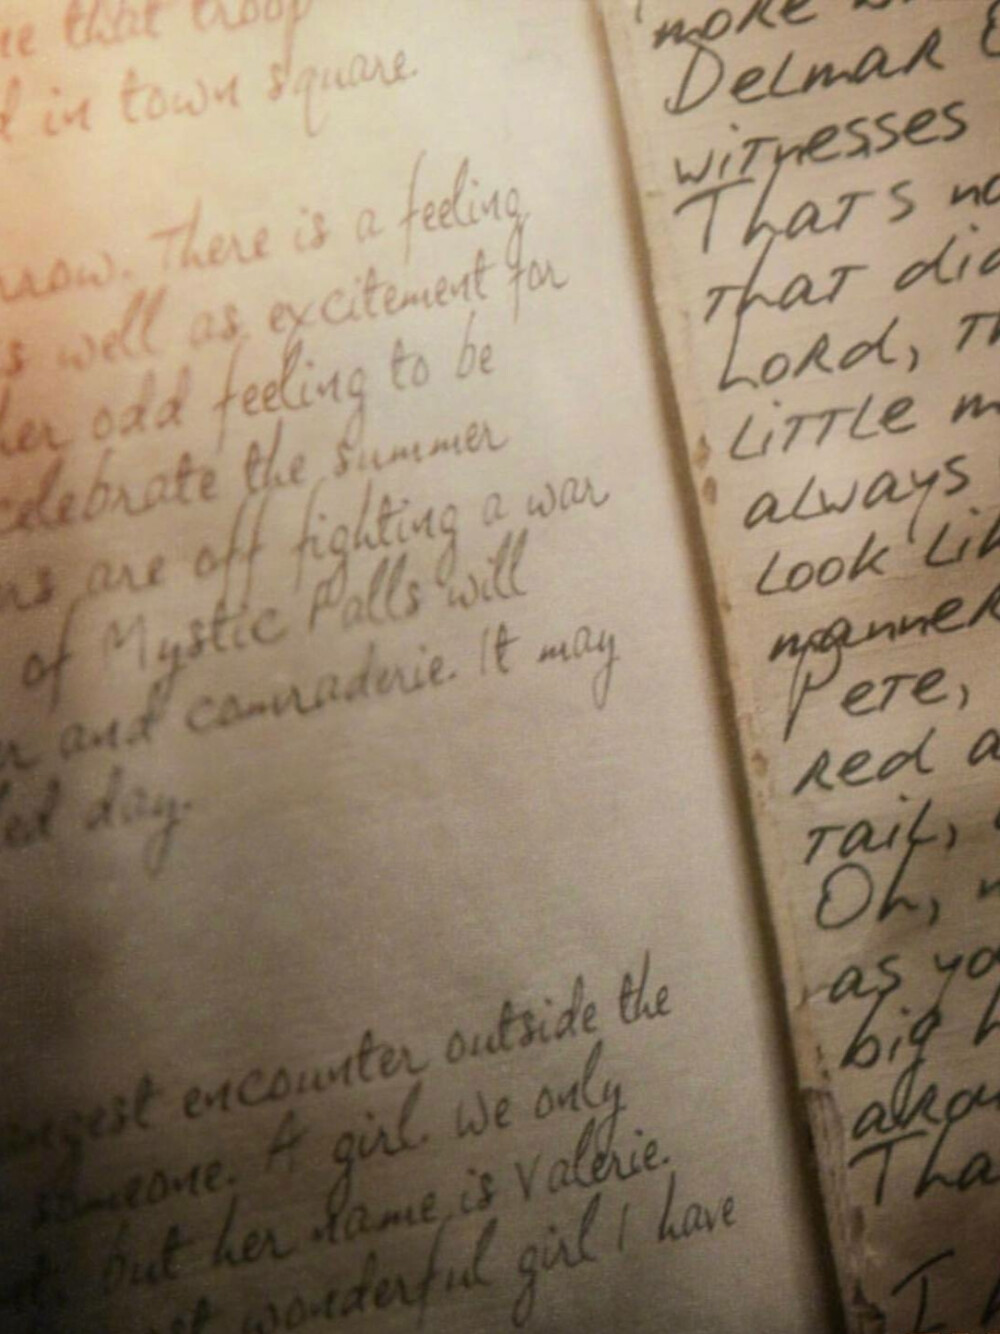 that troop
in town square.
There is a feeling
well as excitement for
odd feeling to be
celebrate the summer
are off fighting a war
of Mystic Falls will
and comraderie. It may
day.
encounter outside the
someone. A girl. We only
but her name is Valerie.
wonderful girl I have
more
Delmar
witnesses
That's
that
Lord,
Little
always
Look
manner
Pete,
red
Tail,
Oh,
as
big
I